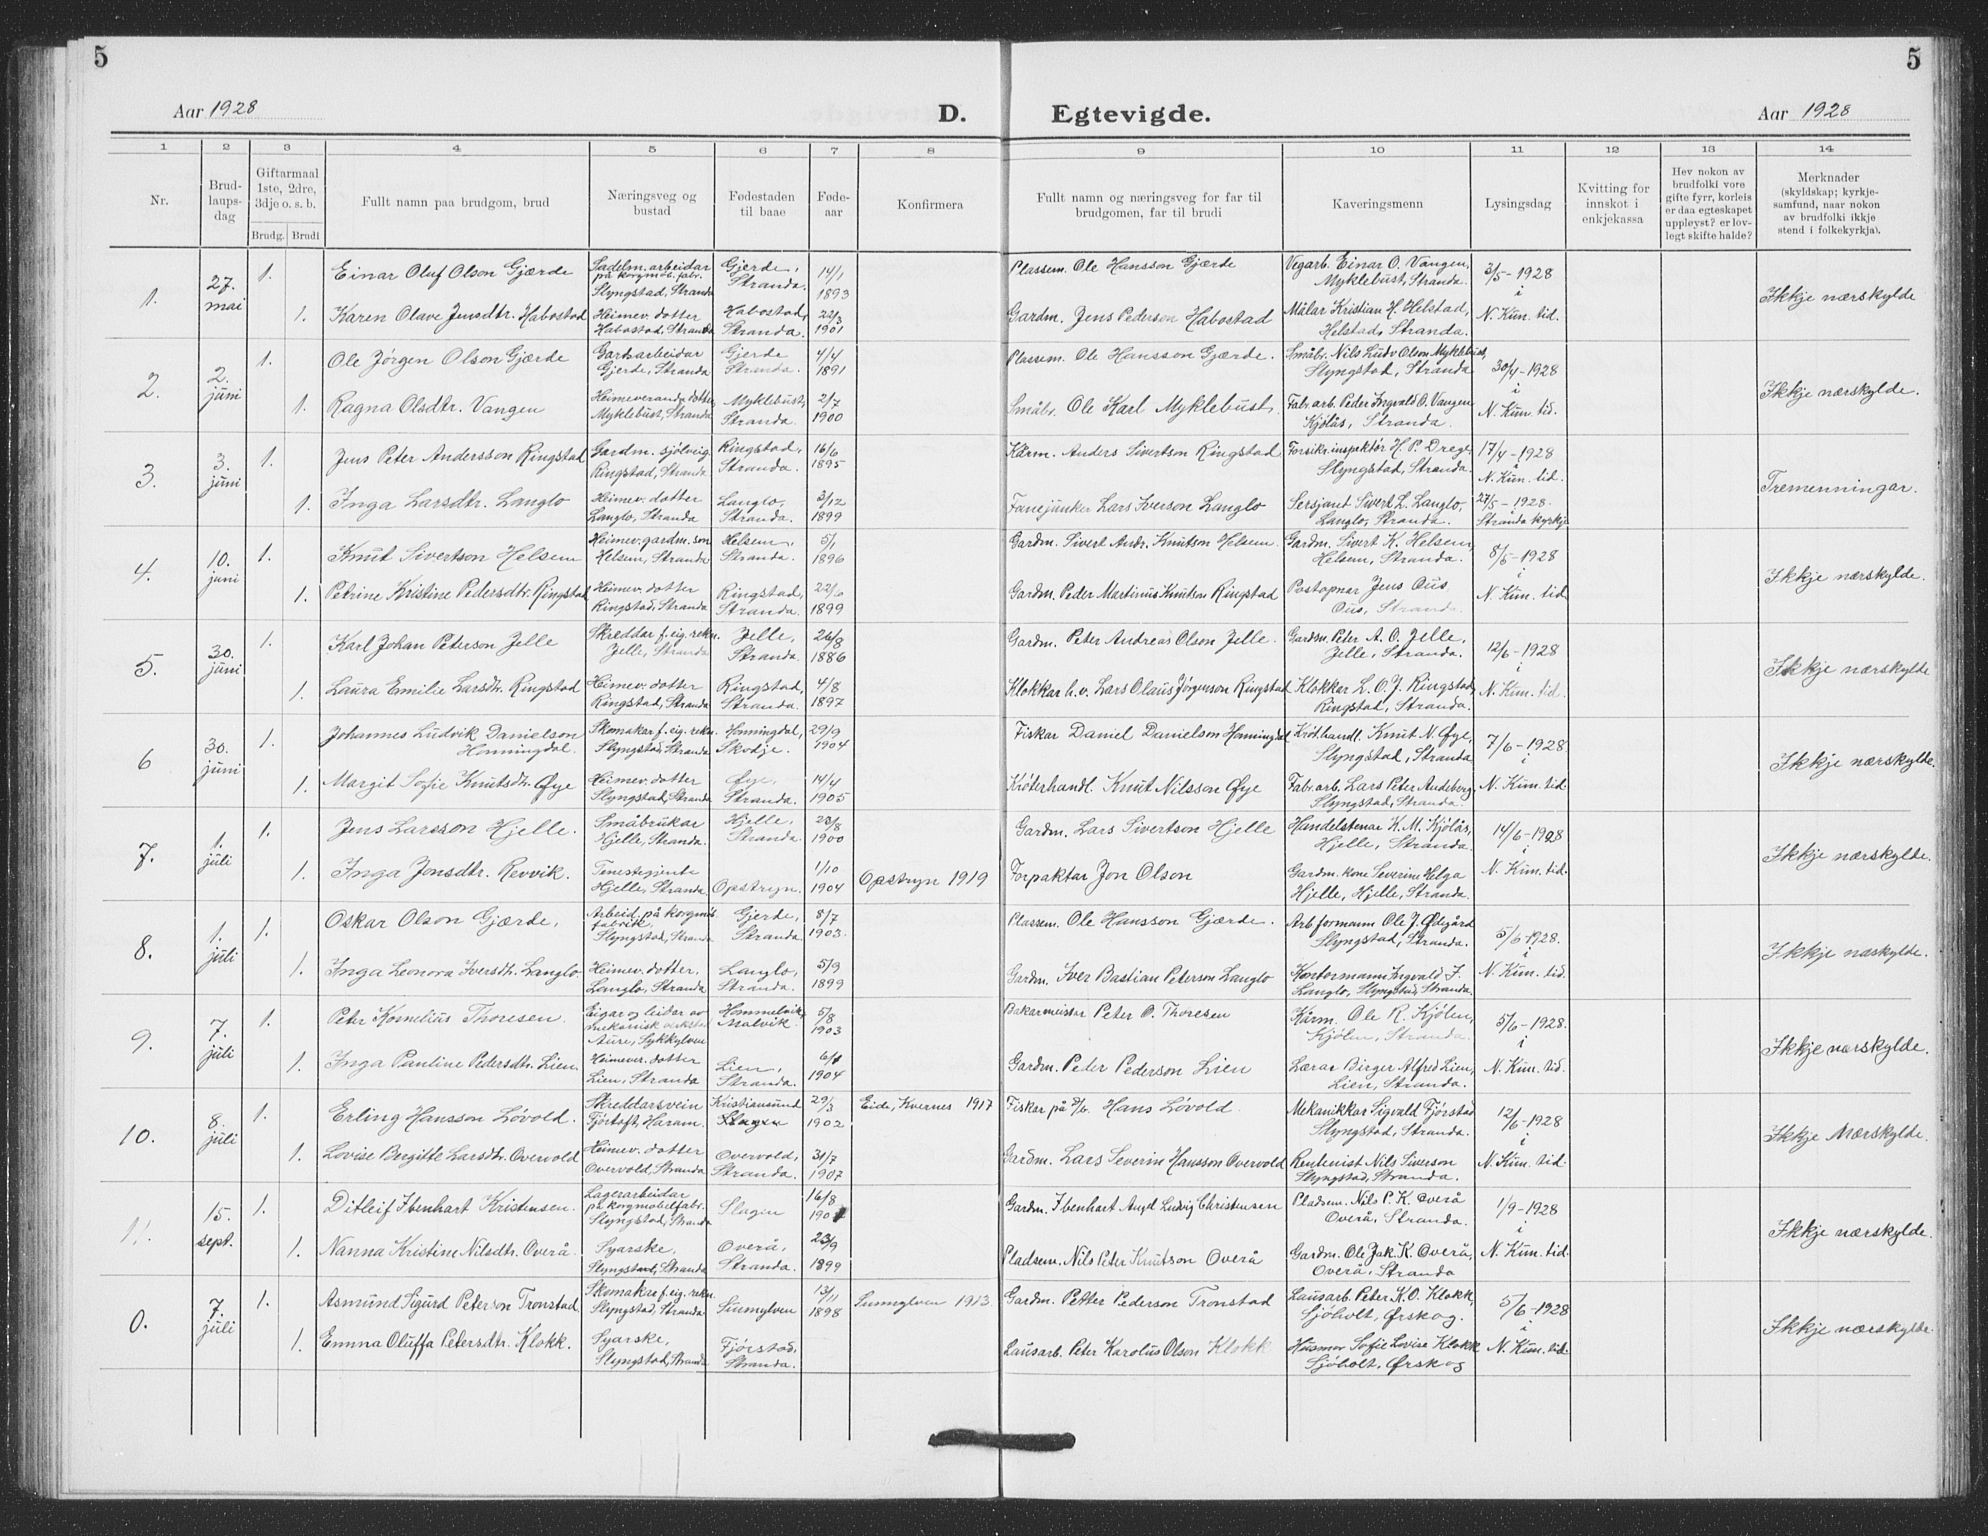 5
5
Aar 1928
D.
Egtevigde.
Aar 1928
1 2 3 4 5 6 7 8 9 10 11 12 13 14
Nr.
Brud-
laups-
dag
Giftarmaal
1ste, 2dre,
3dje o. s. b.
Brudg. Brudi
Fullt namn paa brudgom, brud
Næringsveg og
bustad
Fødestaden
til baae
Føde-
aar
Konfirmera
Fullt namn og næringsveg for far til
brudgomen, far til brudi
Kaveringsmenn
Lysingsdag
Kvitting for
innskot i
enkjekassa
Hev nokon av
brudfolki vore
gifte fyrr, korleis
er daa egteskapet
uppløyst? er lov-
legt skifte halde?
Merknader
(skyldskap; kyrkje-
samfund, naar nokon
av brudfolki ikkje
stend i folkekyrkja).
1.
27.
mai
1.
Einar Oluf Olson Gjærde
Sadelm. arbeidar
på korgmöb. fabr.
Slyngstad, Stranda
Gjerde,
Stranda.
14/1
1893
Plassem. Ole Hansson Gjærde
Vegarb. Einar O. Vangen,
Myklebust, Stranda.
3/5-1928
i
N. Kun. tid.
Ikkje nærskylde
1.
Karen Olave Jensdtr. Habostad
Heimev. dotter
Habostad, Stranda
Habostad,
Stranda.
22/3
1901
Gardm. Jens Pederson Habostad
Målar Kristian H. Helstad,
Helstad, Stranda.
2.
2.
juni
1.
Ole Jørgen Olson Gjærde
Gardsarbeidar
Gjerde, Stranda
Gjerde
Stranda.
4/4
1891
Plassem. Ole Hansson Gjærde.
Småbr. Nils Ludv Olson Myklebust,
Slyngstad, Stranda
30/4-1928
i
N. Kun. tid.
Ikkje nærskylde.
1.
Ragna Olsdtr. Vangen
Heimeveranda dotter
Myklebust, Stranda
Myklebust,
Stranda.
2/7
1900
Småbr. Ole Karl Myklebust.
Fabr. arb. Peder Ingvald O. Vangen
Kjölås, Stranda.
3.
3.
juni
1.
Jens Peter Andersson Ringstad
Gardm. sjölveig.
Ringstad, Stranda
Ringstad,
Stranda.
16/6
1895
Kårm. Anders Sivertson Ringstad
Forsikr.inspektör H. P. Drege
Slyngstad, Stranda.
17/4-1928
i
N. Kun. tid.
Tremenningar.
1.
Inga Larsdtr. Langlo
Heimev. dotter
Langlo, Stranda
Langlo,
Stranda.
3/12
1899
Fanejunker Lars Iverson Langlo
Sersjant Sivert L. Langlo,
Langlo, Stranda.
27/5-1928.
Stranda kyrkje
4.
10.
juni
1.
Knut Sivertson Helsem
Heimev. gardm. son
Helsem, Stranda
Helsem,
Stranda.
5/1
1896
Gardm. Sivert Andr. Knutson Helsem.
Gardm. Sivert K. Helsem,
Helsem, Stranda.
8/5-1928
i
N. Kun. tid
Ikkje nærskylde.
1.
Petrine Kristine Pedersdtr. Ringstad
Heimev. dotter
Ringstad, Stranda
Ringstad,
Stranda.
1899
Gardm. Peder Martinius Knutson Ringstad
Postopnar Jens Ous
Ous, Stranda.
5.
30.
juni
1.
Karl Johan Peterson Jelle
Skreddar f. eig. rekn.
Jelle, Stranda
Jelle,
Stranda.
26/8
1886
Gardm. Peter Andreas Olson Jelle.
Gardm. Peter A. O. Jelle.
Jelle, Stranda.
12/6-1928
i
N. Kun. tid.
Ikkje nærskylde
1.
Laura Emilie Larsdtr. Ringstad
Heimev. dotter
Ringstad, Stranda
Ringstad,
Stranda.
4/8
1897
Klokkar h. v. Lars Olaus Jørgenson Ringstad
Klokkar L. O. J. Ringstad,
Ringstad, Stranda.
6
30.
juni
1.
Johannes Ludvik Danielson
Honningdal.
Skomakar f. eig. rekn.
Slyngstad, Stranda
Honningdal,
Skodje.
29/9
1904
Fiskar Daniel Danielson Honningdal
Kröt.handl. Knut N. Øye,
Slyngstad, Stranda
7/6-1928
i
N. Kun. tid
Ikkje nærskylde.
1.
Margit Sofie Knutsdtr. Øye
Heimev. dotter
Slyngstad, Stranda
Øye,
Stranda.
14/4
1905
Kröterhandl. Knut Nilsson Øye
Fabr. arb. Lars Peter Andeberg
Slyngstad, Stranda.
7.
1.
juli
1.
Jens Larsson Hjelle.
Småbrukar
Hjelle, Stranda.
Hjelle.
Stranda.
23/8
1900
Gardm. Lars Sivertson Hjelle
Handelstenar K. M. Kjölås,
Hjelle, Stranda.
14/6-1928
i
N. Kun. tid.
Ikkje nærskylde.
1.
Inga Jonsdtr. Revvik.
Tenestegjente
Hjelle, Stranda
Opstryn.
1/10
1904
Opstryn 1919
Forpaktar Jon Olson
Gardm. kone Severine Helga
Hjelle, Hjelle, Stranda.
8.
1.
juli
1.
Oskar Olson Gjærde,
Arbeid. på korgmöb
fabrik.
Slyngstad, Stranda
Gjerde,
Stranda.
8/7
1903.
Plassem. Ole Hansson Gjærde.
Arb formann Ole J. Ødegård
Slyngstad, Stranda.
5/6-1928.
i
N. Kun. tid.
Ikkje naskylde.
1.
Inga Leonora Iversdtr. Langlo.
Heimev. dotter.
Langlo, Stranda
Langlo,
Stranda.
5/9
1899
Gardm. Iver Bastian Peterson Langlo
Kontormann Ingvald J.
Langlo, Slyngstad, Stranda.
9.
7.
juli
1.
Peter Kornelius Thoresen.
Eigar og leidar av
mekanisk verkstad
Aure, Sykkylven
Hommelvik,
Malvik.
5/8
1903
Bakarmeistar Peter O. Thoresen
Kårm. Ole R. Kjölen,
Kjölen, Stranda.
5/6-1928.
i
N. Kun. tid.
Ikkje nærskylde.
1.
Inga Pauline Pedersdtr. Lien.
Heimever. dotter
Lien, Stranda
Lien,
Stranda.
1904
Gardm. Peter Pederson Lien
Lærar Birger Alfred Lien,
Lien, Stranda.
10.
8.
juli
1.
Erling Hansson Lövold.
Skreddarsvein
Fjörtoft, Haram.
Kristiansund
29/3
1902
Eide, Kvernes 1917
Fiskar på Hans Lövold.
Mekanikkar Sigvald Fjörstad
Slyngstad, Stranda.
12/6-1928
i
N. Kun. tid.
Ikkje Nærskylde.
1.
Lovise Bergitte Larsdtr. Overvold
Heimev. dotter
Overvold, Stranda
Overvold,
Stranda.
31/7
1907
Gardm. Lars Severin Hansson Overvold
Rentenist Nils Siverson
Slyngstad, Stranda.
11.
15.
sept.
1.
Ditleif Ibenhart Kristensen.
Lagerarbeidar
på korgmöbelfabr.
Slyngstad, Stranda
Slagen
16/8
Gardm. Ibenhart Angel Ludvig Christensen
Pladsem. Nils P. K. Överå
Överå, Stranda.
1/9-1928
i
N. Kun. tid.
Ikkje nærskylde.
1.
Nanna Kristine Nilsdtr. Överå.
Syarske,
Slyngstad, Stranda
Överå,
Stranda.
23/9
1899
Pladsem. Nils Peter Knutson Överå
Gardm. Ole Jak. K. Överå,
Överå, Stranda
0.
7.
juli
1.
Asmund Sigurd Peterson Tronstad
Skomakar f. eig. rekn.
Slyngstad, Stranda
Sunnylven
13/11
1898
Sunnylven 1913.
Gardm. Petter Pederson Tronstad
Lausarb. Peter K. O. Klokk,
Sjöholt, Ørskog.
5/6-1928
i
N. Kun. tid
Ikkje nærskylde.
1.
Emma Oluffa Petersdtr. Klokk.
Syarske,
Slyngstad, Stranda
Fjörstad,
Stranda.
Lausarb. Peter Karolus Olson Klokk
Husmor Sofie Lovise Klokk
Sjöholt, Ørskog